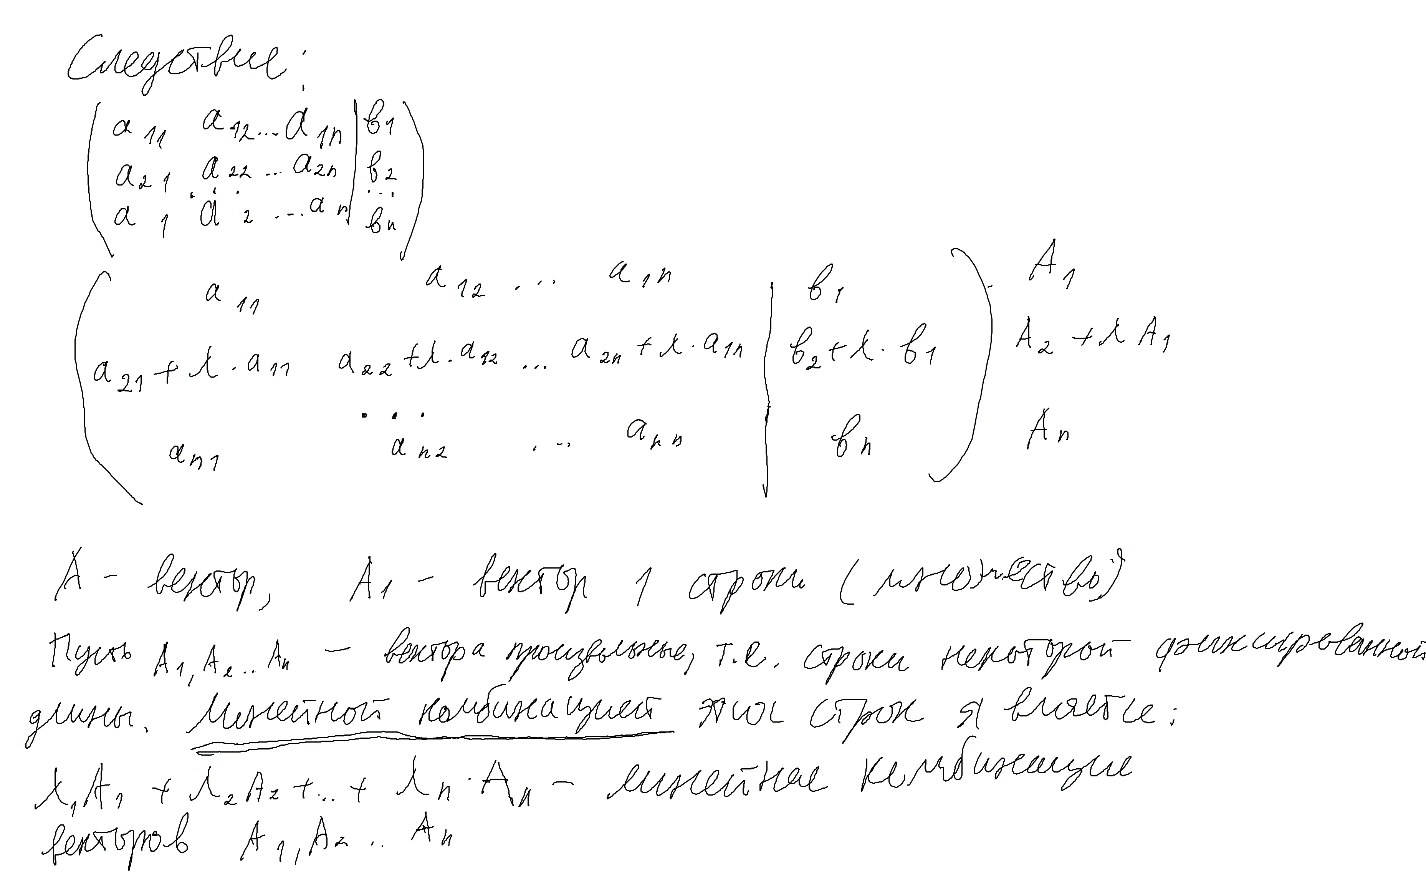 Следствие:
a₁₁ a₁₂ ... a₁ₙ | в₁
a₂₁ a₂₂ ... a₂ₙ | в₂
... ...
a ₁ a ₂ ... a ₙ | вₙ
a₁₁ a₁₂ ... a₁ₙ | в₁ A₁
a₂₁ + λ · a₁₁ a₂₂ + λ · a₁₂ ... a₂ₙ + λ · a₁ₙ | в₂ + λ · в₁ A₂ + λ A₁
...
aₙ₁ aₙ₂ ... aₙₙ | вₙ Aₙ
A - вектор, A₁ - вектор 1 строки (множество)
Пусть A₁, A₂ .. Aₙ - вектора произвольные, т.е. строки некоторой фиксированной
длины. Линейной комбинацией этих строк является:
λ₁A₁ + λ₂A₂ + ... + λₙ · Aₙ - линейная комбинация
векторов A₁, A₂ .. Aₙ